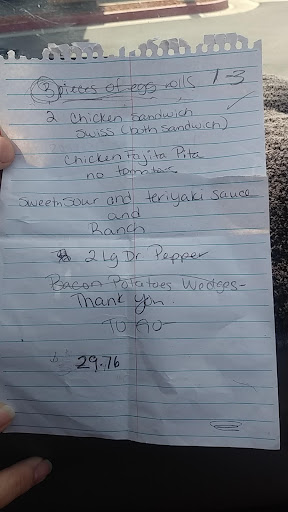 3 pieces of egg rolls 1-3
2 Chicken Sandwich
Swiss (both sandwich)
Chicken fajita Pita
no tomatoes
Sweet n Sour and teriyaki sauce
and
Ranch
2 Lg Dr Pepper
Bacon Potatoes Wedges-
Thank you.
TO GO-
29.76